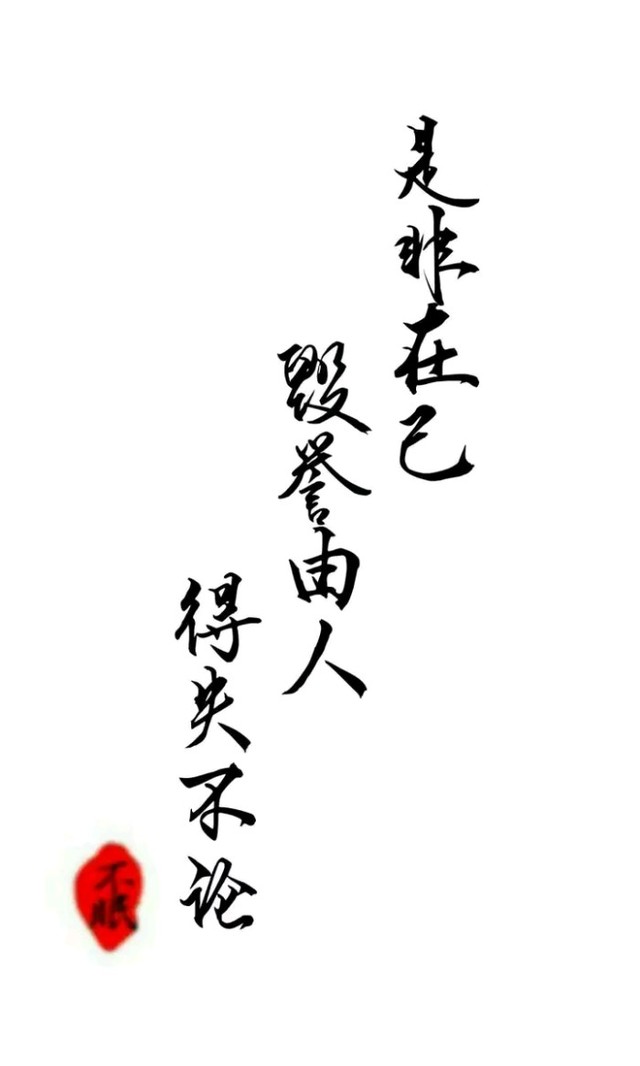 是非在己
毁誉由人
得失不论
不眠